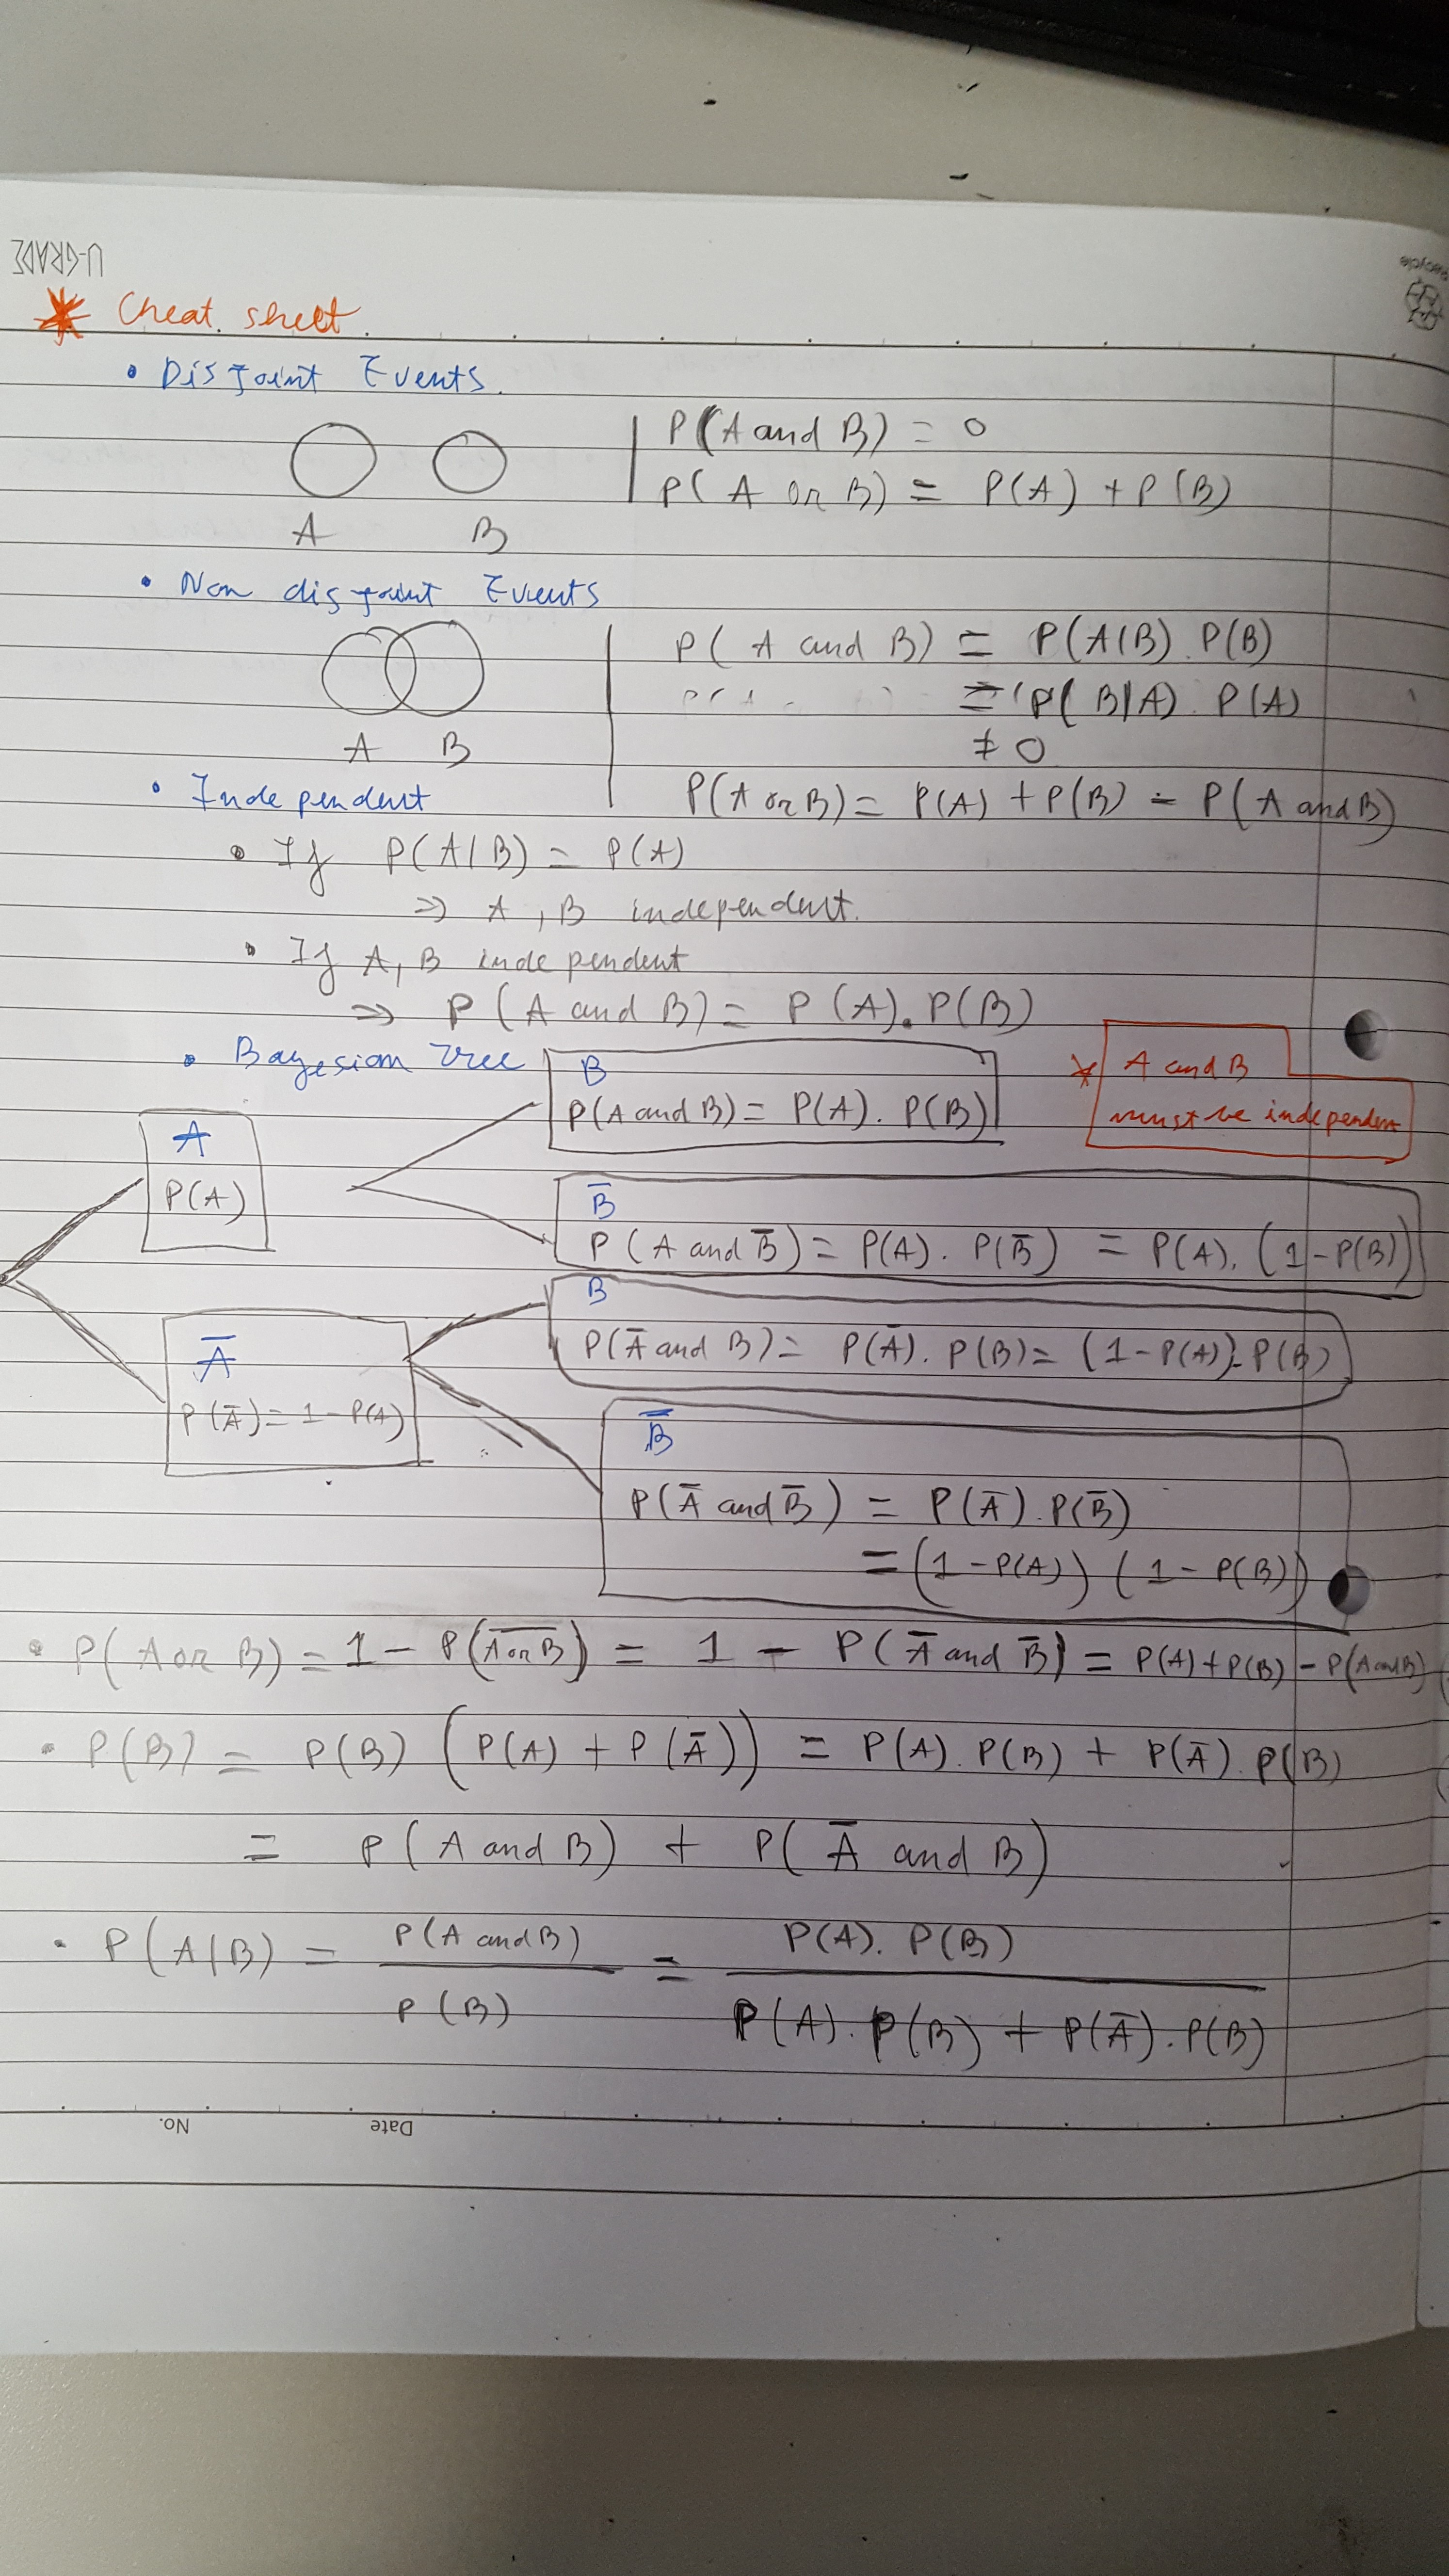 U-GRADE
recycle
* Cheat sheet.
• Disjoint Events.
P(A and B) = 0
P(A or B) = P(A) + P(B)
A B
• Non disjoint Events
P(A and B) = P(A|B). P(B)
= P(B|A). P(A)
≠ 0
A B
P(A or B) = P(A) + P(B) - P(A and B)
• Independent
• If P(A|B) = P(A)
⇒ A, B independent.
• If A, B independent
⇒ P(A and B) = P(A). P(B)
• Bayesian Tree
* A and B
must be independent
B
P(A and B) = P(A). P(B)
A
P(A)
B̅
P(A and B̅) = P(A). P(B̅) = P(A). (1 - P(B))
B
P(A̅ and B) = P(A̅). P(B) = (1 - P(A)). P(B)
A̅
P(A̅) = 1 - P(A)
B̅
P(A̅ and B̅) = P(A̅). P(B̅)
= (1 - P(A)) (1 - P(B))
• P(A or B) = 1 - P(A̅ ̅o̅r̅ ̅B̅) = 1 - P(A̅ and B̅) = P(A) + P(B) - P(A and B)
• P(B) = P(B) (P(A) + P(A̅)) = P(A). P(B) + P(A̅). P(B)
= P(A and B) + P(A̅ and B)
• P(A|B) = P(A and B) / P(B) = P(A). P(B) / P(A). P(B) + P(A̅). P(B)
No. Date